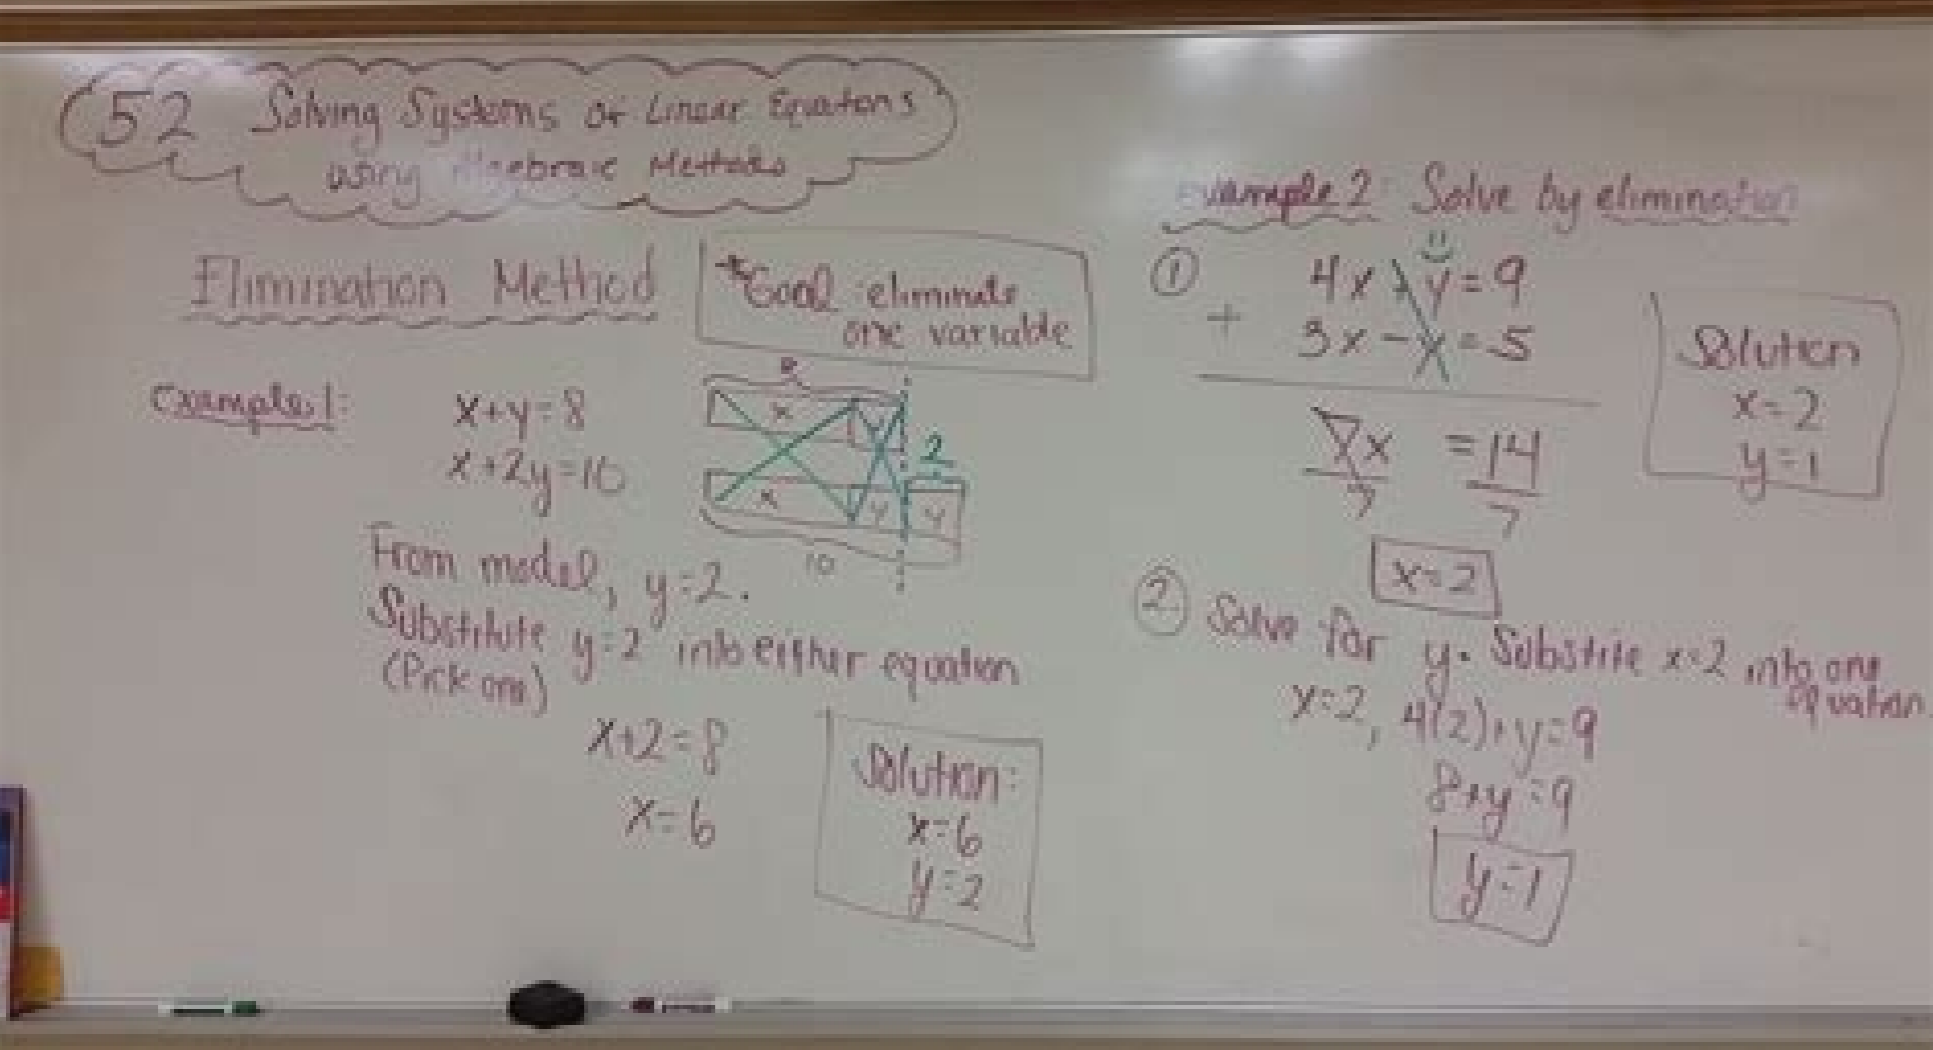 52 Solving Systems of Linear Equations
using Algebraic Methods
Elimination Method
*Goal: eliminate
one variable
Example 1:
x+y=8
x+2y=10
8
x y
2
x y y
10
From model, y=2.
Substitute y=2 into either equation
(Pick one)
x+2=8
x=6
Solution:
x=6
y=2
Example 2: Solve by elimination
① 4x+y=9
+ 3x-y=5
7x =14
7 7
x=2
Solution
x=2
y=1
② Solve for y. Substite x=2 into one
equation.
x=2, 4(2)+y=9
8+y=9
y=1